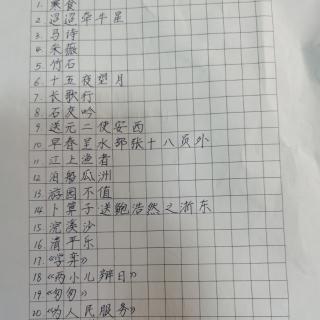 1. 寒食
2 迢迢牵牛星
3. 马诗
4 采薇
5 竹石
6 十五夜望月
7 长歌行
8 石灰吟
9 送元二使安西
10 早春呈水部张十八员外
11 江上渔者
12 泊船瓜洲
13. 游园不值
14 卜算子送鲍浩然之浙东
15 浣溪沙
16 清平乐
17.《学弈》
18《两小儿辩日》
19《匆匆》
20《为人民服务》